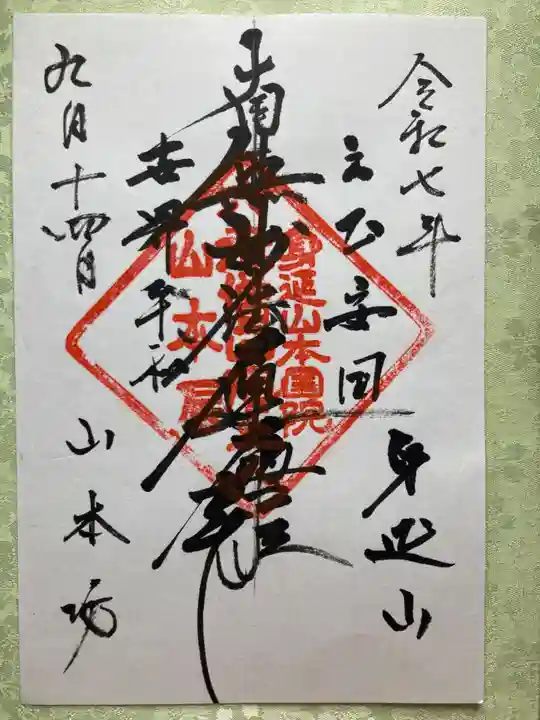 令和七年
身延山
立正安国
南無妙法蓮華経
世界平和
九月十四日
山本坊
身延山本国院
山本房